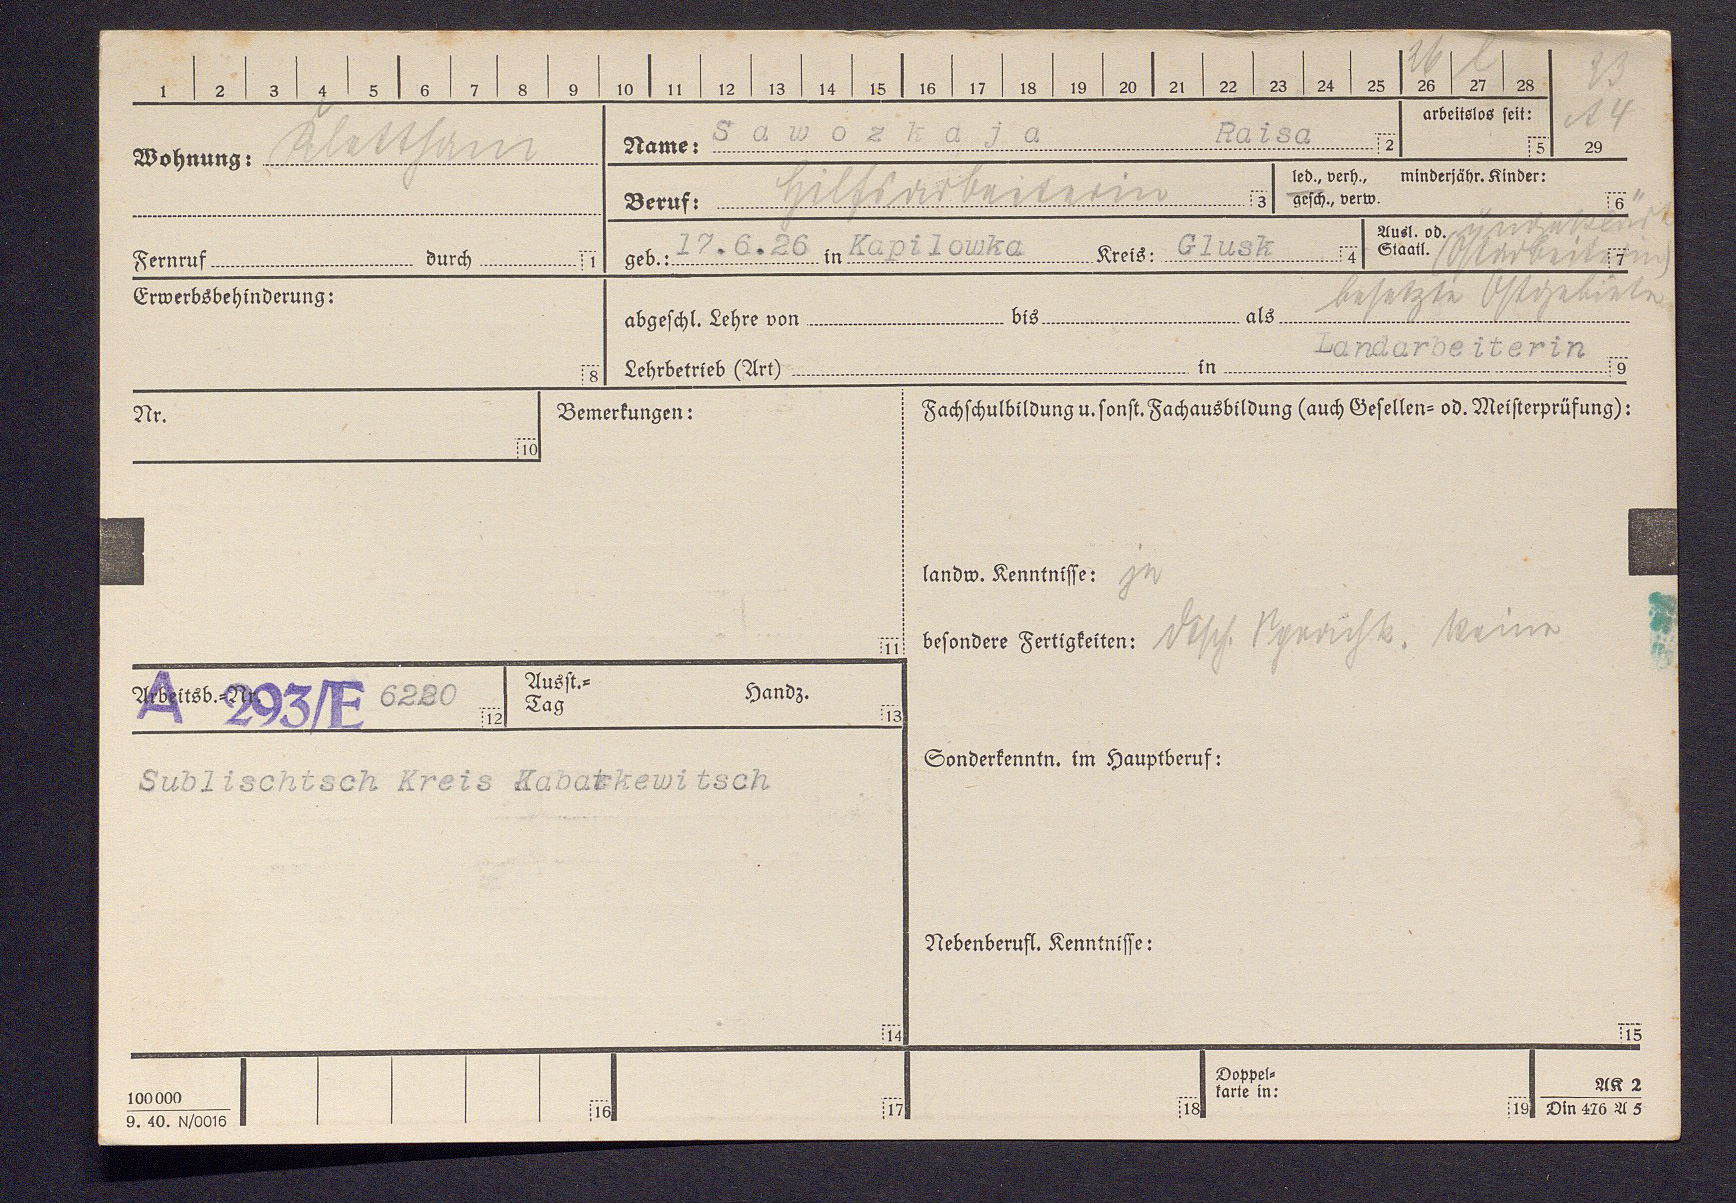 1 2 3 4 5 6 7 8 9 10 11 12 13 14 15 16 17 18 19 20 21 22 23 24 25 26 27 28
26 l
23
A4
29
Wohnung: Klettham
Name: Sawozkaja Raisa 2
arbeitslos seit: 5
Beruf: Hilfsarbeiterin 3
led., verh., gesch., verw.
minderjähr. Kinder: 6
Fernruf durch 1
geb.: 17.6.26 in Kapilowka Kreis: Glusk 4
Ausl. od. Staatl. "ungeklärt" (Ostarbeiterin) 7
besetzte Ostgebiete
Erwerbsbehinderung: 8
abgeschl. Lehre von bis als
Landarbeiterin
Lehrbetrieb (Art) in 9
Nr. 10
Bemerkungen: 11
Fachschulbildung u. sonst. Fachausbildung (auch Gesellen- od. Meisterprüfung):
landw. Kenntnisse: ja
besondere Fertigkeiten: Dtsch. Sprachk. keine
Arbeitsb.-Nr. A 293/E 6220 12
Ausst.-Tag Handz. 13
Sublischtsch Kreis Kabatkewitsch
14
Sonderkenntn. im Hauptberuf:
Nebenberufl. Kenntnisse:
15
100 000
9. 40. N/0016
16 17 18
Doppelkarte in: 19
AK 2
Din 476 A 5